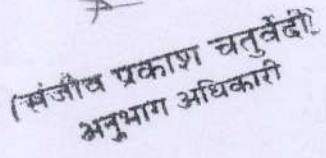 (संजीव प्रकाश चतुर्वेदी)
अनुभाग अधिकारी